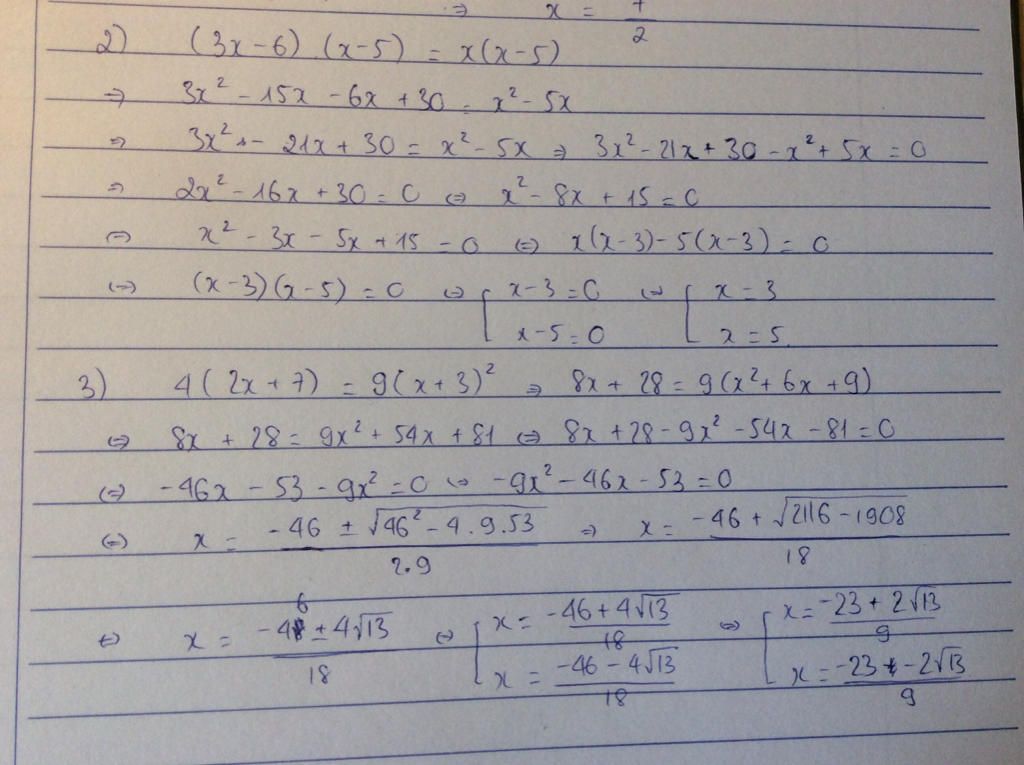 ⇒ x = 7/2
2) (3x-6).(x-5) = x(x-5)
⇒ 3x² - 15x - 6x + 30 = x² - 5x
⇒ 3x² - 21x + 30 = x² - 5x ⇒ 3x² - 21x + 30 - x² + 5x = 0
⇒ 2x² - 16x + 30 = 0 ⇔ x² - 8x + 15 = 0
⇔ x² - 3x - 5x + 15 = 0 ⇔ x(x-3) - 5(x-3) = 0
⇔ (x-3)(x-5) = 0 ⇔ [ x-3 = 0 ⇔ [ x = 3
x-5 = 0 x = 5
3) 4(2x+7) = 9(x+3)² ⇒ 8x + 28 = 9(x² + 6x + 9)
⇔ 8x + 28 = 9x² + 54x + 81 ⇔ 8x + 28 - 9x² - 54x - 81 = 0
⇔ -46x - 53 - 9x² = 0 ⇔ -9x² - 46x - 53 = 0
⇔ x = (-46 ± √(46² - 4.9.53))/(2.9) ⇒ x = (-46 + √(2116 - 1908))/18
⇔ x = (-46 ± 4√13)/18 ⇔ [ x = (-46 + 4√13)/18 ⇔ [ x = (-23 + 2√13)/9
x = (-46 - 4√13)/18 x = (-23 - 2√13)/9